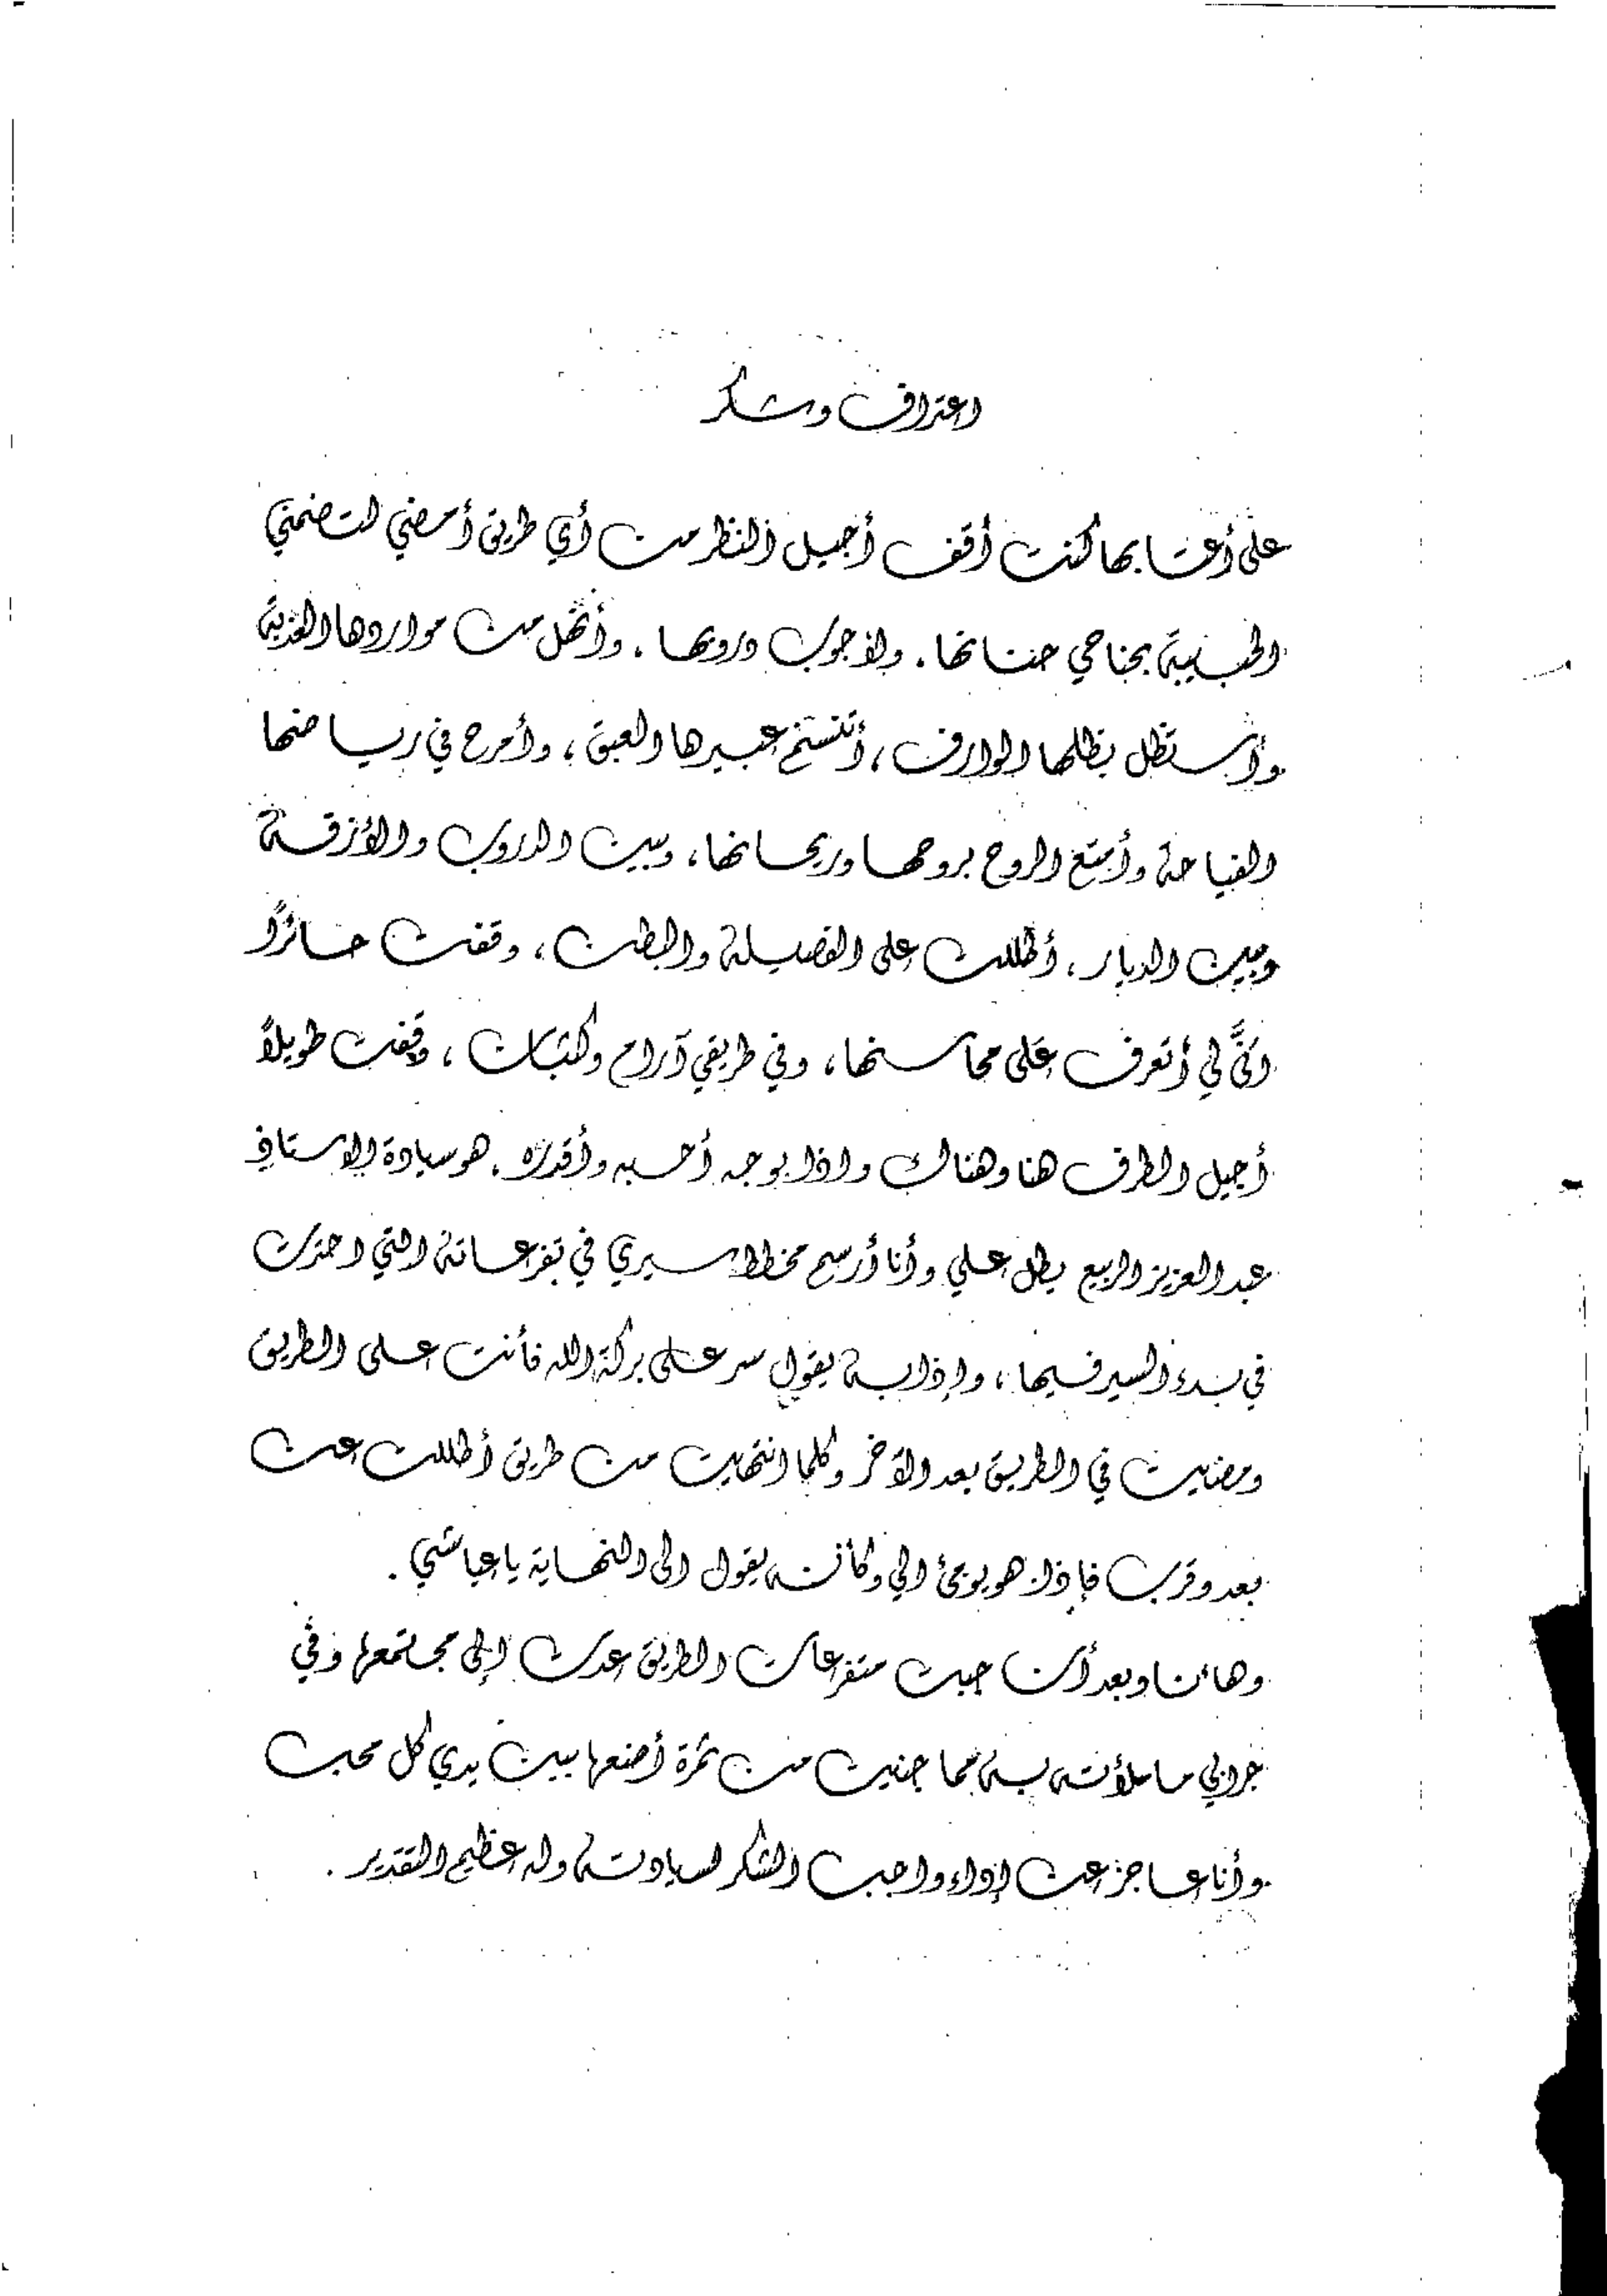 اعتراف وشكر
على أعتابها كنت أقف أجيل النظر من أي طريق أمضي لتضمني
الحبيبة بجناحي حنانها. ولأجوب دروبها. وأنهل من مواردها العذبة
وأستظل بظلها الوارف، أتنسم عبيرها العبق، وأمرح في رياضها
الفياحة وأمتع الروح بروحها وريحانها، وبين الدروب والأزقة
وبين الديار، أطللت على الفصيلة والبطن، وقفت حائرًا
أنَّى لي أتعرف على محاسنها، وفي طريقي آرام وكثبان، وقفت طويلاً
أجيل الطرف هنا وهناك وإذا بوجه أحبه وأقدره. هو سيادة الاستاذ
عبد العزيز الربيع يطل علي وأنا أرسم مخطط سيري في تفرعاته التي احترت
في بدء السير فيها، وإذا به يقول سر على بركة الله فأنت على الطريق
ومضيت في الطريق بعد الآخر وكلما انتهيت من طريق أطللت عن
بعد وقرب فإذا هو يومئ الي وكأنه يقول الى النهاية يا عياشي.
وهائنا وبعد أن جبت متفرعات الطريق عدت إلى مجتمعها وفي
جرابي ما ملأته به مما جنيت من ثمرة أضعها بين يدي كل محب
وأنا عاجز عن إداء واجب الشكر لسيادته وله عظيم التقدير.